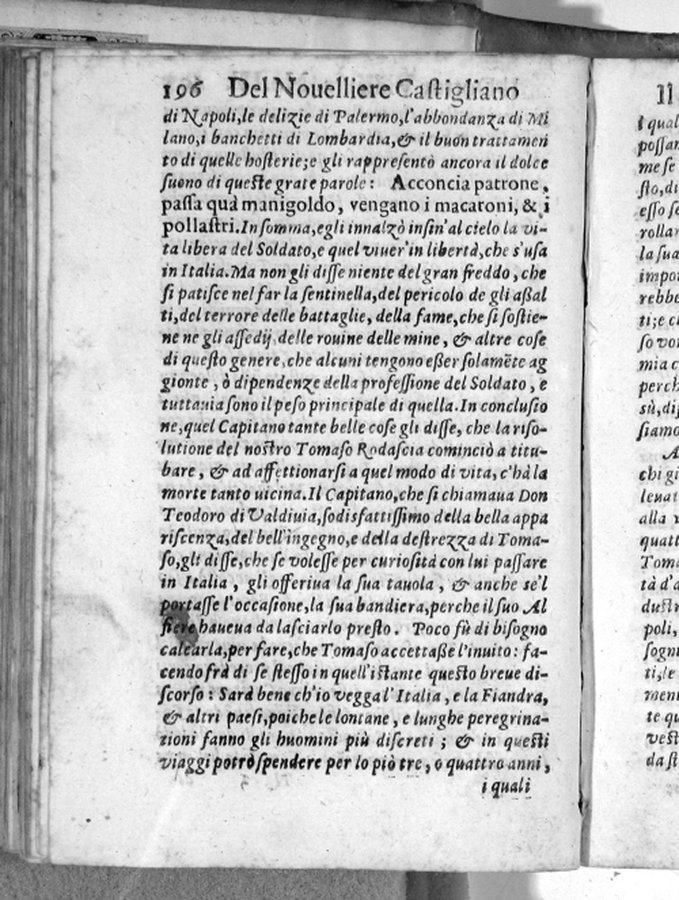 196 Del Nouelliere Castigliano
di Napoli, le delizie di Palermo, l'abbondanza di Mi
lano, i banchetti di Lombardia, & il buon trattamen
to di quelle hosterie; e gli rappresentò ancora il dolce
suono di queste grate parole: Acconcia patrone,
passa quà manigoldo, vengano i macaroni, & i
pollastri. In somma, egli innalzò insin'al cielo la vi-
ta libera del Soldato, e quel viuer'in libertà, che s'usa
in Italia. Ma non gli disse niente del gran freddo, che
si patisce nel far la sentinella, del pericolo de gli assal
ti, del terrore delle battaglie, della fame, che si sostie-
ne ne gli assedij, delle rouine delle mine, & altre cose
di questo genere, che alcuni tengono esser solamẽte ag
gionte, ò dipendenze della professione del Soldato, e
tuttauia sono il peso principale di quella. In conclusio
ne, quel Capitano tante belle cose gli disse, che la riso-
lutione del nostro Tomaso Rodascia cominciò a titu-
bare, & ad affettionarsi a quel modo di vita, c'hà la
morte tanto uicina. Il Capitano, che si chiamaua Don
Teodoro di Valdiuia, sodisfattissimo della bella appa
riscenza, del bell'ingegno, e della destrezza di Toma-
so, gli disse, che se volesse per curiosità con lui passare
in Italia, gli offeriua la sua tauola, & anche se'l
portasse l'occasione, la sua bandiera, perche il suo Al
fiere haueua da lasciarlo presto. Poco fù di bisogno
calcarla, per fare, che Tomaso accettasse l'inuito: fa-
cendo frà di se stesso in quell'istante questo breue di-
scorso: Sarà bene ch'io vegga l'Italia, e la Fiandra,
& altri paesi, poiche le lontane, e lunghe peregrina-
tioni fanno gli huomini più discreti; & in questi
viaggi potrò spendere per lo piò tre, o quattro anni,
i quali